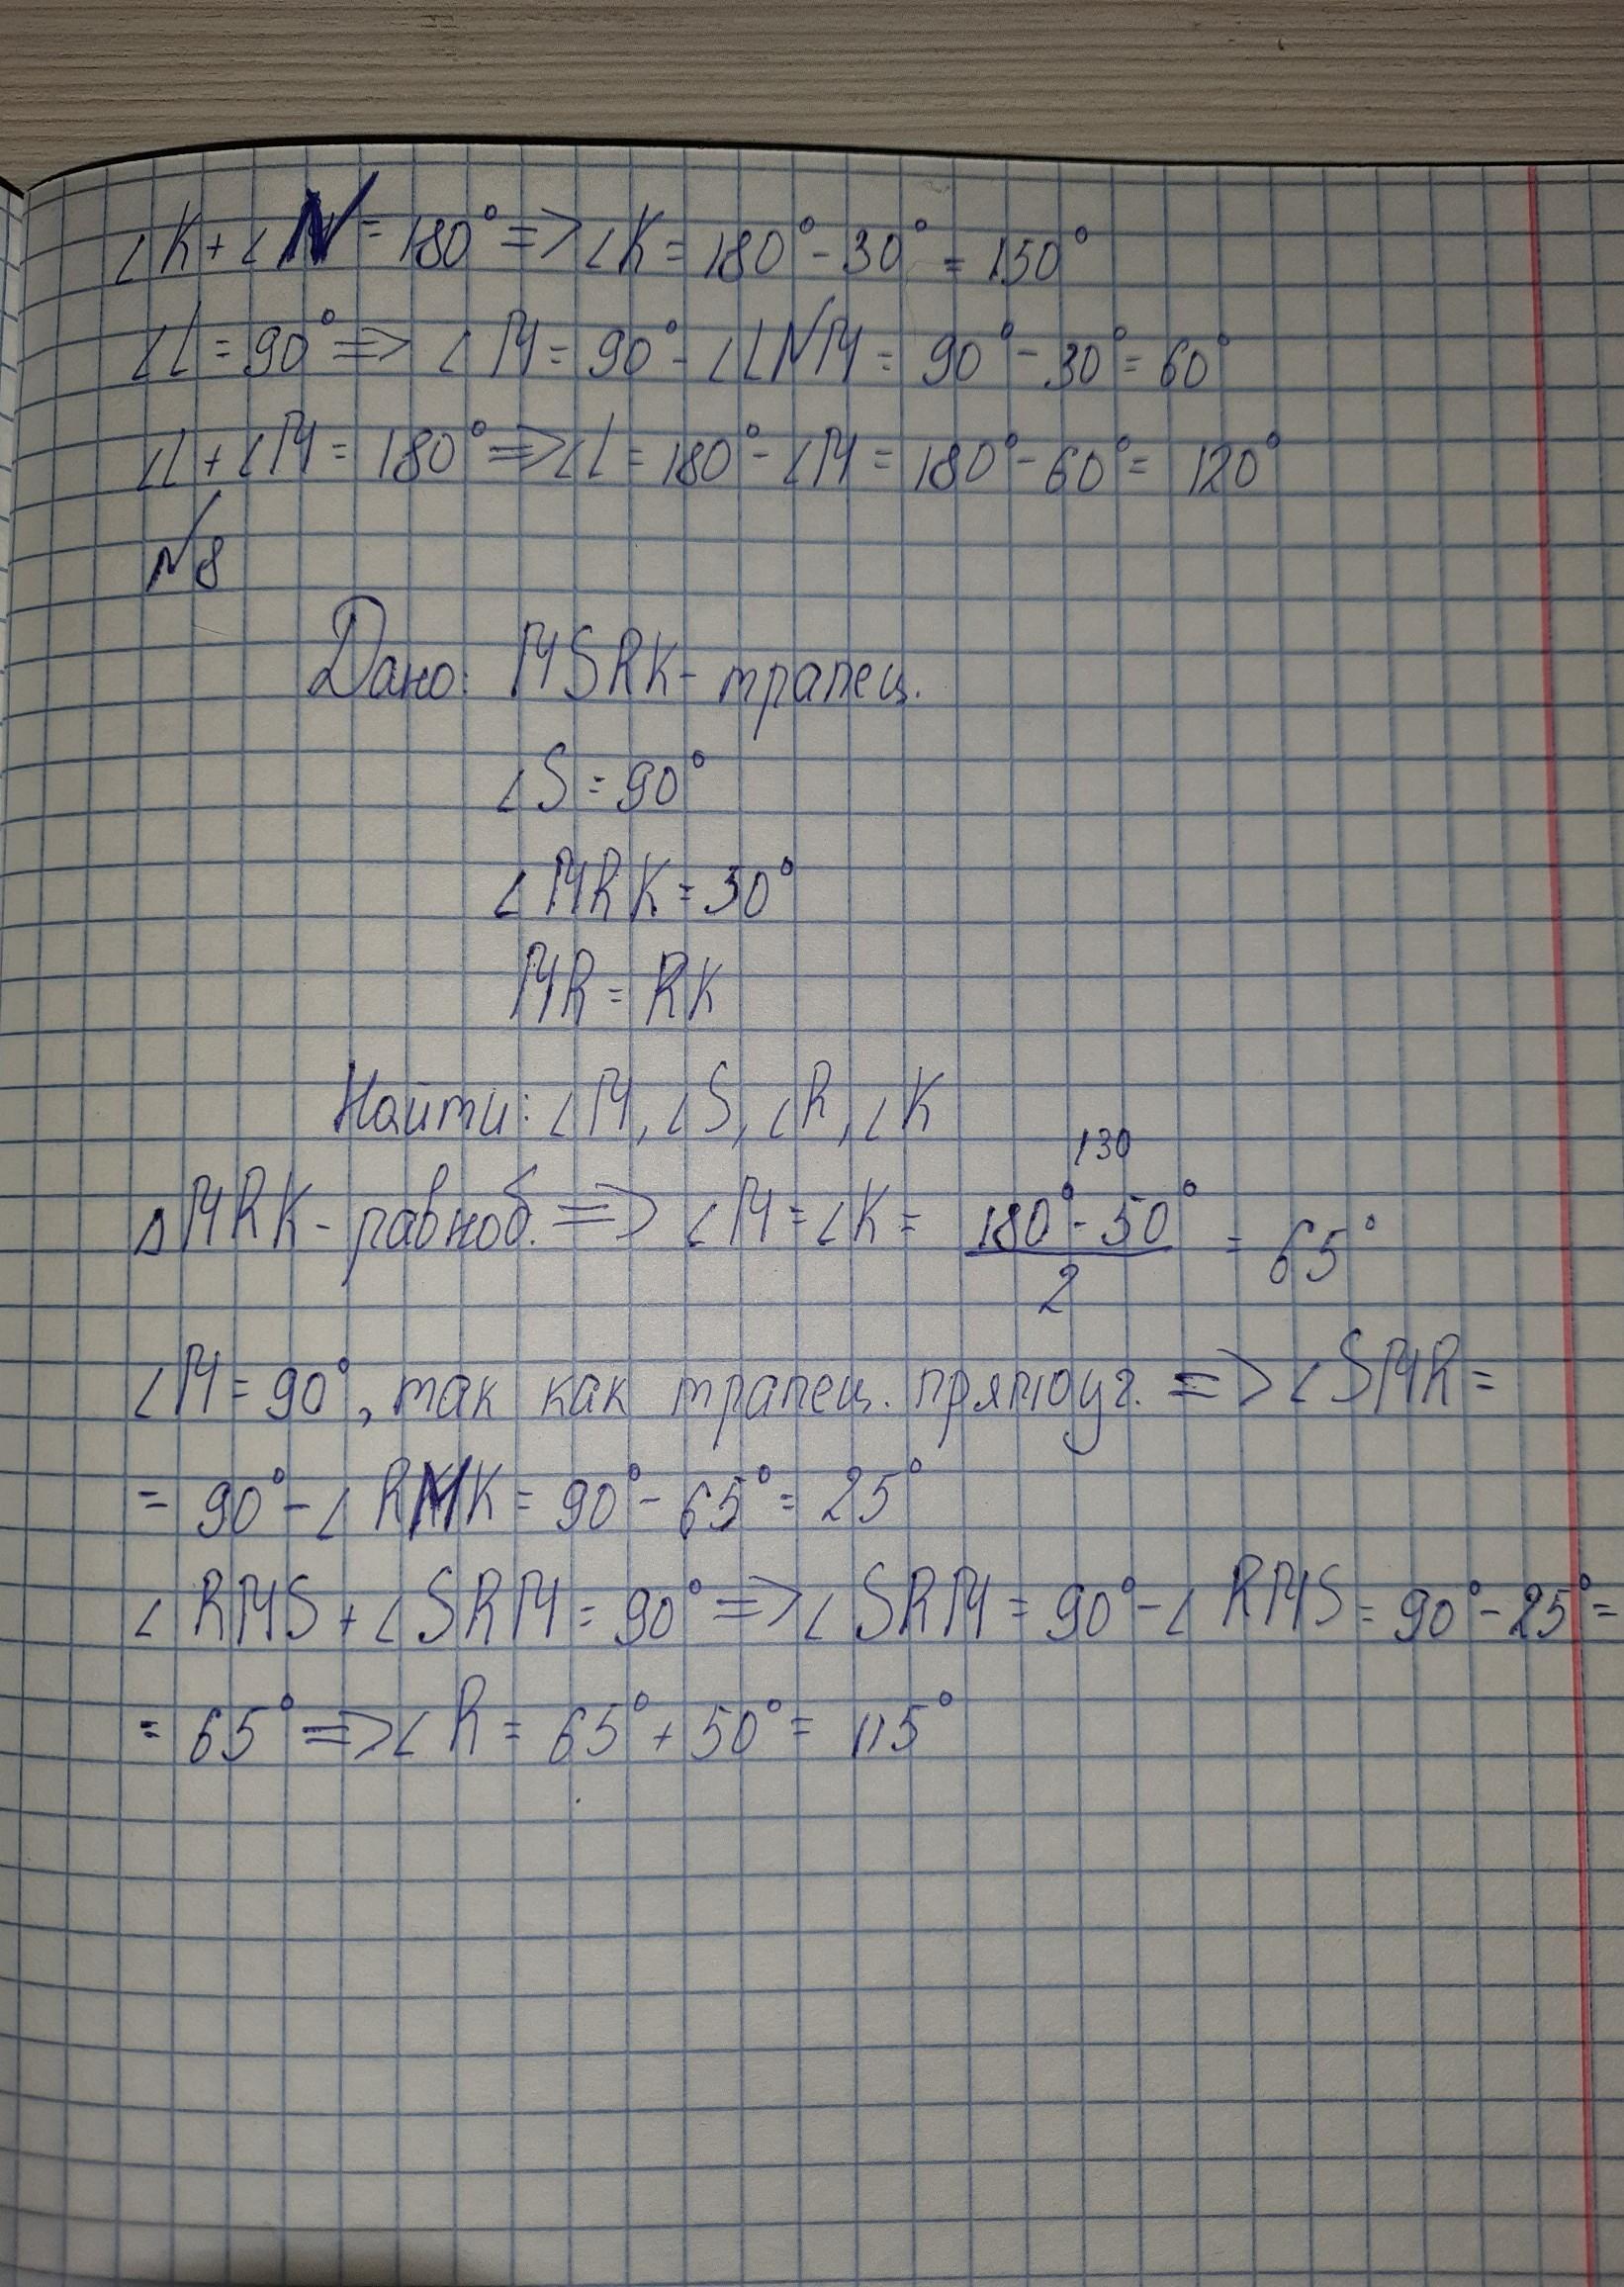 ∠K + ∠N = 180° => ∠K = 180° - 30° = 150°
∠L = 90° => ∠M = 90° - ∠LNM = 90° - 30° = 60°
∠L + ∠M = 180° => ∠L = 180° - ∠M = 180° - 60° = 120°
№8
Дано: MSRK - трапец.
∠S = 90°
∠MRK = 50°
MR = RK
Найти: ∠M, ∠S, ∠R, ∠K
130
△MRK - равноб. => ∠M = ∠K = (180° - 50°)/2 = 65°
∠M = 90°, так как трапец. прямоуг. => ∠SMR =
= 90° - ∠RMK = 90° - 65° = 25°
∠RMS + ∠SRM = 90° => ∠SRM = 90° - ∠RMS = 90° - 25° =
= 65° => ∠R = 65° + 50° = 115°